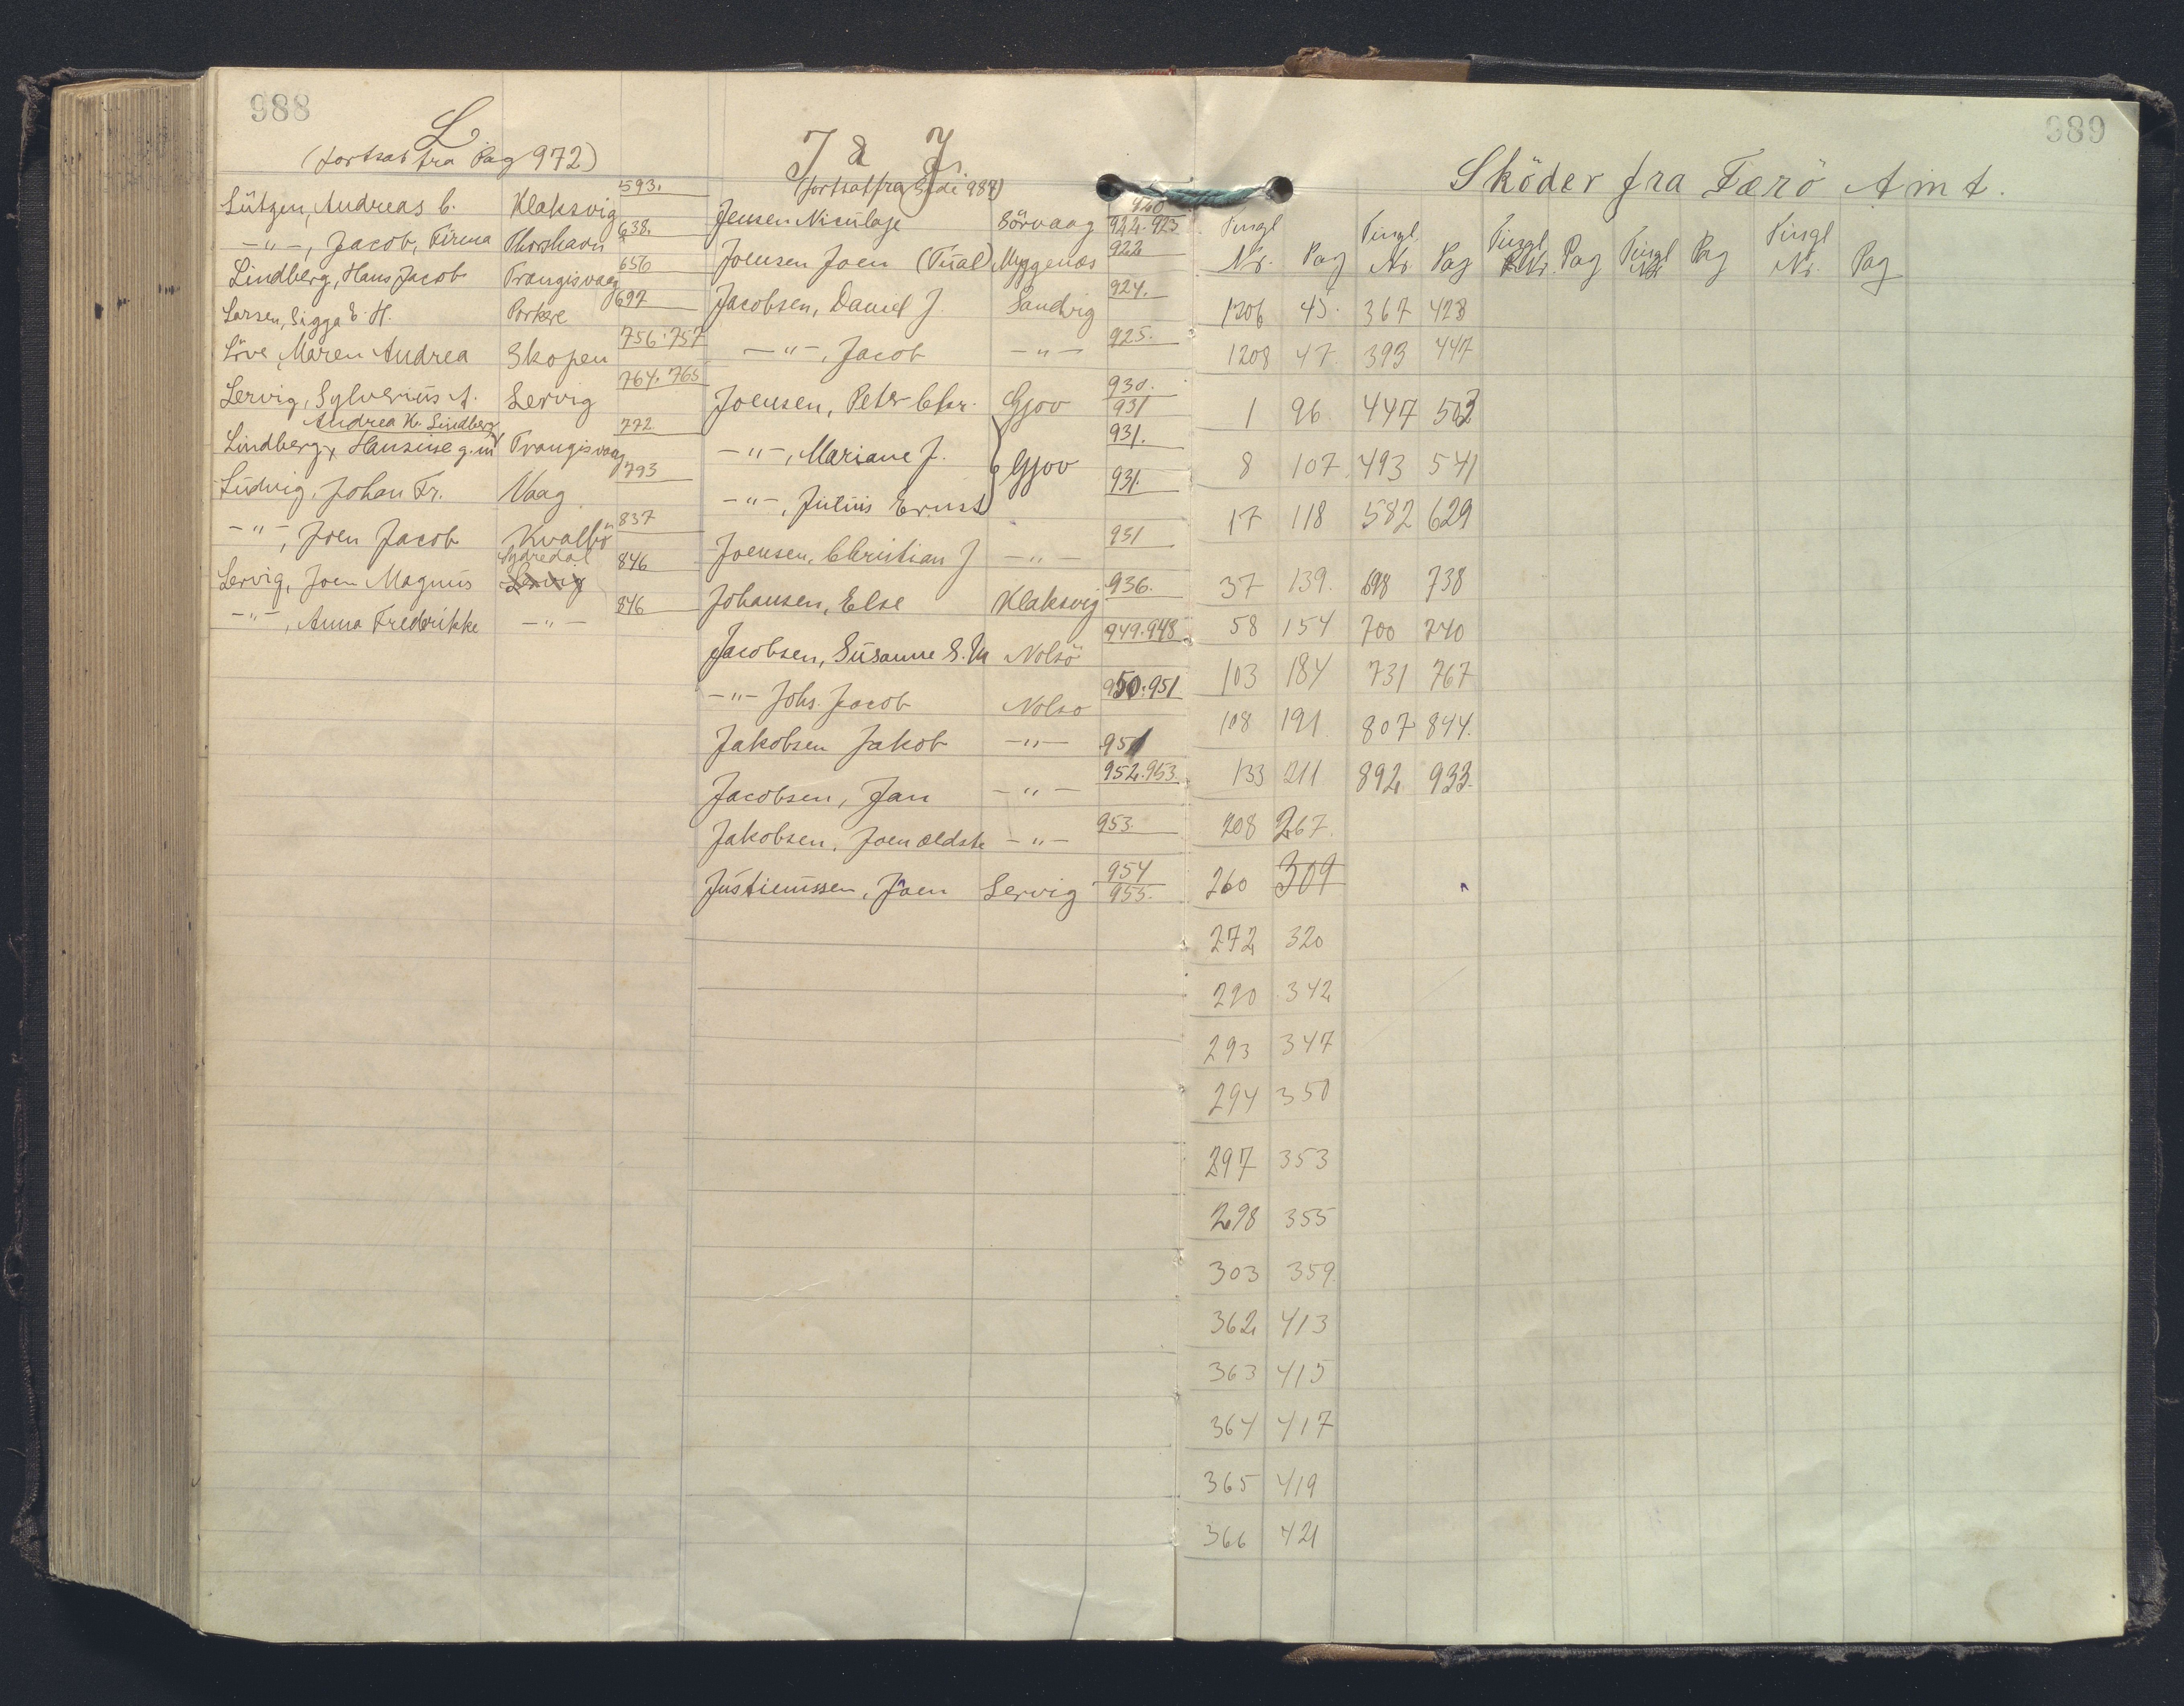 988
L
(fortsat fra Pag 972)
Lützen, Andreas C. Klaksvig 593.
-"-, Jacob, Firma Thorshavn 638.
Lindberg, Hans Jacob Trangisvaag 656
Larsen, Sigga E. H. Porkere 697
Löve, Maren Andrea Skopen 756.757
Lervig, Sylverius A. Lervig 764.765
Andrea K. Lindberg
Lindberg, Hansine g.m Trangisvaag 772
Ludvig, Johan Fr. Vaag 793
-"-, Joen Jacob Kvalbö 837
Sydredal
Lervig, Joen Magnus Lervig 846
-"-, Anna Fredrikke -"- 846
J & J
(fortsat fra Side 987)
920
Jensen Niculaje Sörvaag 922.923
Joensen Joen (Tual) Myggenæs 922
Jacobsen, Daniel J. Sandvig 924.
-"-, Jacob -"- 925.
Joensen, Peter Chr. Gjov 930. 931
-"-, Mariane J. Gjov 931.
-"-, Julius Ernst 931.
Joensen, Christian J -"- 931
Johansen, Else Klaksvig 936.
Jacobsen, Susanne S. M Nolsö 949.948
-"- Johs. Jacob Nolso 950.951
Jakobsen Jakob -"- 951
Jacobsen, Jan -"- 952.953.
Jakobsen, Joen ældste -"- 953.
Justinussen, Joen Lervig 954 955.
989
Sköder fra Færö Amt.
Tingl Nr. Pag Tingl. Nr Pag Tingl Nr. Pag Tingl Nr Pag Tingl Nr. Pag
1206 45. 367 428
1208 47. 393 447
1 96 447 503
8 107 493 541
17 118 582 629
37 139. 698 738
58 154 700 740
103 184 731 767
108 191 807 844.
133 211 892 933.
208 267.
260 309
272 320
290 342
293 347
294 350
297 353
298 355
303 359.
362 413
363 415
364 417
365 419
366 421